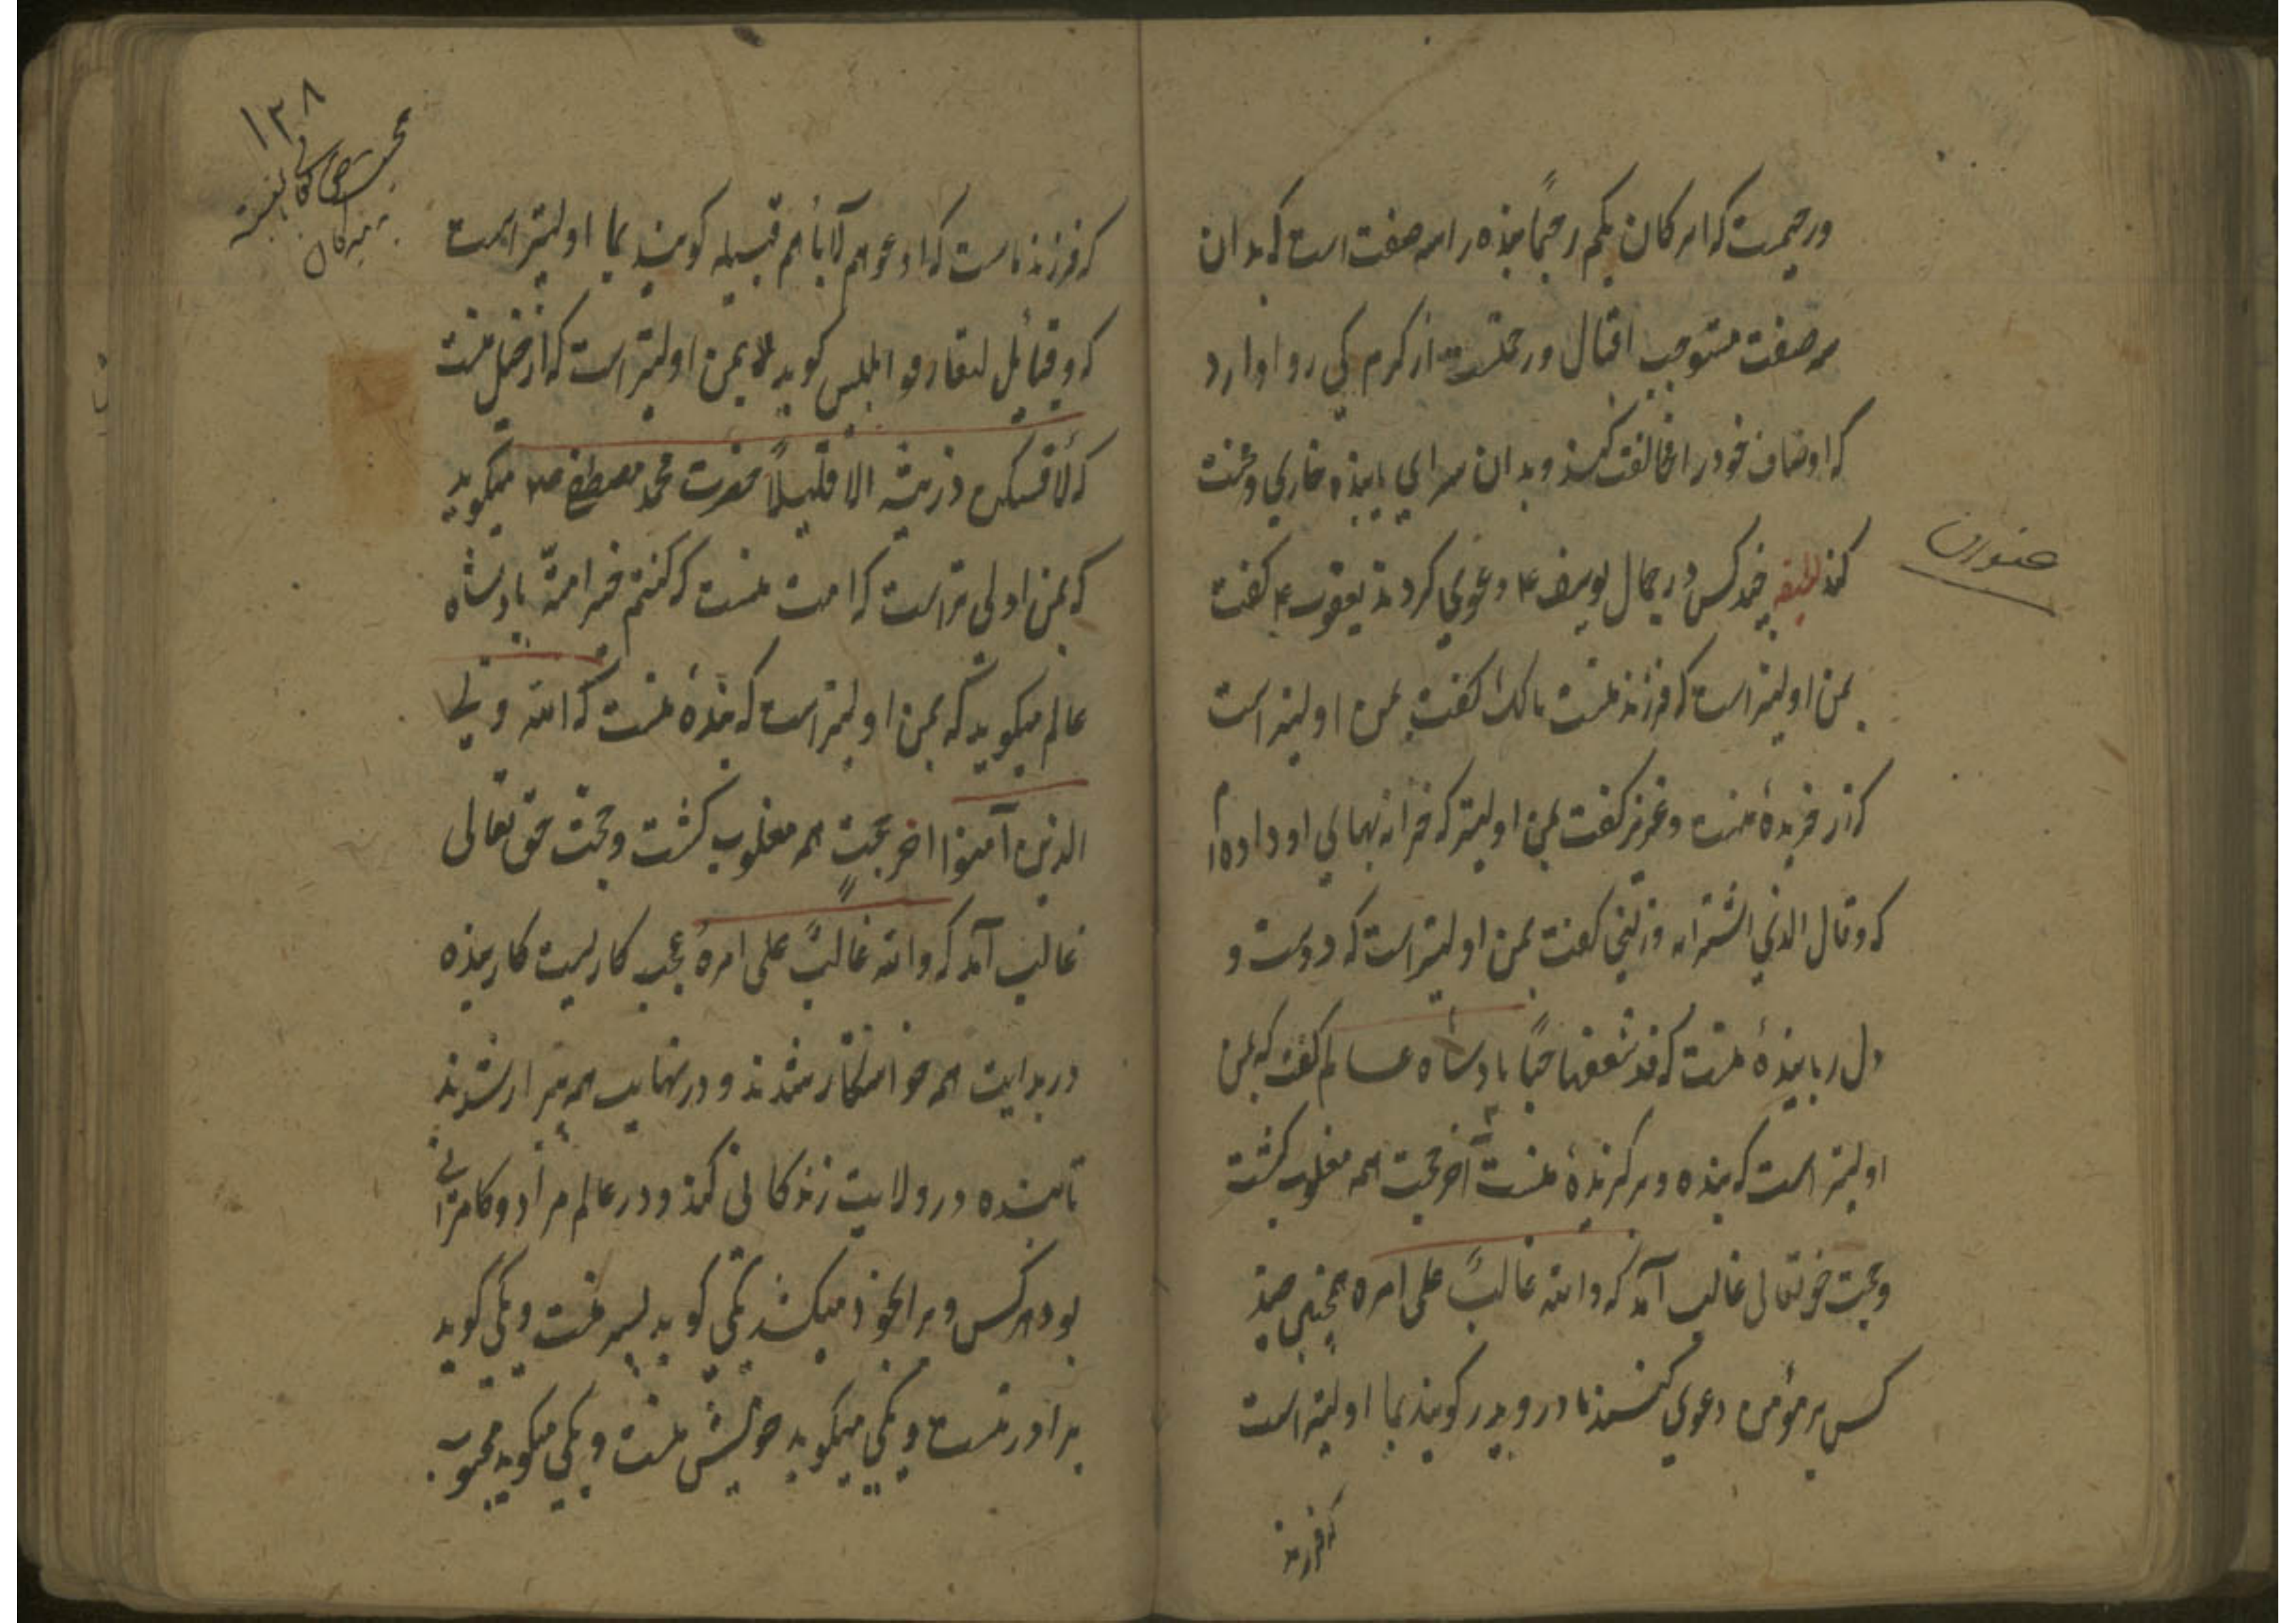 ورحیمست که انه کان بکم رحیما بنده را سه صفت است که بدان
سه صفت مستوجب اقبال ورحمتست از کرم کی روا دارد
که اوصاف خود را مخالفت کند و بدان سرای بابنده خاری ومحنت
کند لطیفه چند کس در جمال یوسف ع دعوی کردند یعقوب ع کفت
بمن اولیتر است که فرزند منست مالک کفت بمن اولیتر است
که زر خریدهٔ منست وعزیز کفت بمن اولیتر که خزانه بهای او داده‌ام
که وقال الذی اشتراه وزلیخا کفت بمن اولیتر است که دوست و
دل ربایندهٔ منست که قد شغفها حبا بادشاه عالم کفت که بمن
اولیتر است که بنده وبرکزیدهٔ منست آخر حجت همه مغلوب کشت
وحجت حق تعالی غالب آمد که والله غالب علی امره همچنین چند
کس بر مؤمن دعوی کنند مادر و پدر کویند بما اولیتر است
که فرزند
۱۳۸
که فرزند ماست که ادعوهم لآبائهم قبیله کویند بما اولیتر است
که وقبائل لتعارفوا ابلیس کوید لا بمن اولیتر است که از خیل منست
که لاحتنکن ذریته الا قلیلاً حضرت محمد مصطفی صلعم میکوید
که بمن اولی تر است که امت منست که کنتم خیر امة بادشاه
عالم میکوید که بمن اولیتر است که بندهٔ منست که الله ولی
الذین آمنوا اخر حجت همه مغلوب کشت وحجت حق تعالی
غالب آمد که والله غالب علی امره عجب کاریست کار بنده
در بدایت همه خواستکار شدند و در نهایت همه بیزار شدند
تا بنده در ولایت زندکانی کند ودر عالم مراد وکامرانی
بود هرکس ویرا بخود میکشد یکی کوید پسر منست ویکی کوید
برادر منست ویکی میکوید خویش منست ویکی میکوید محبوب